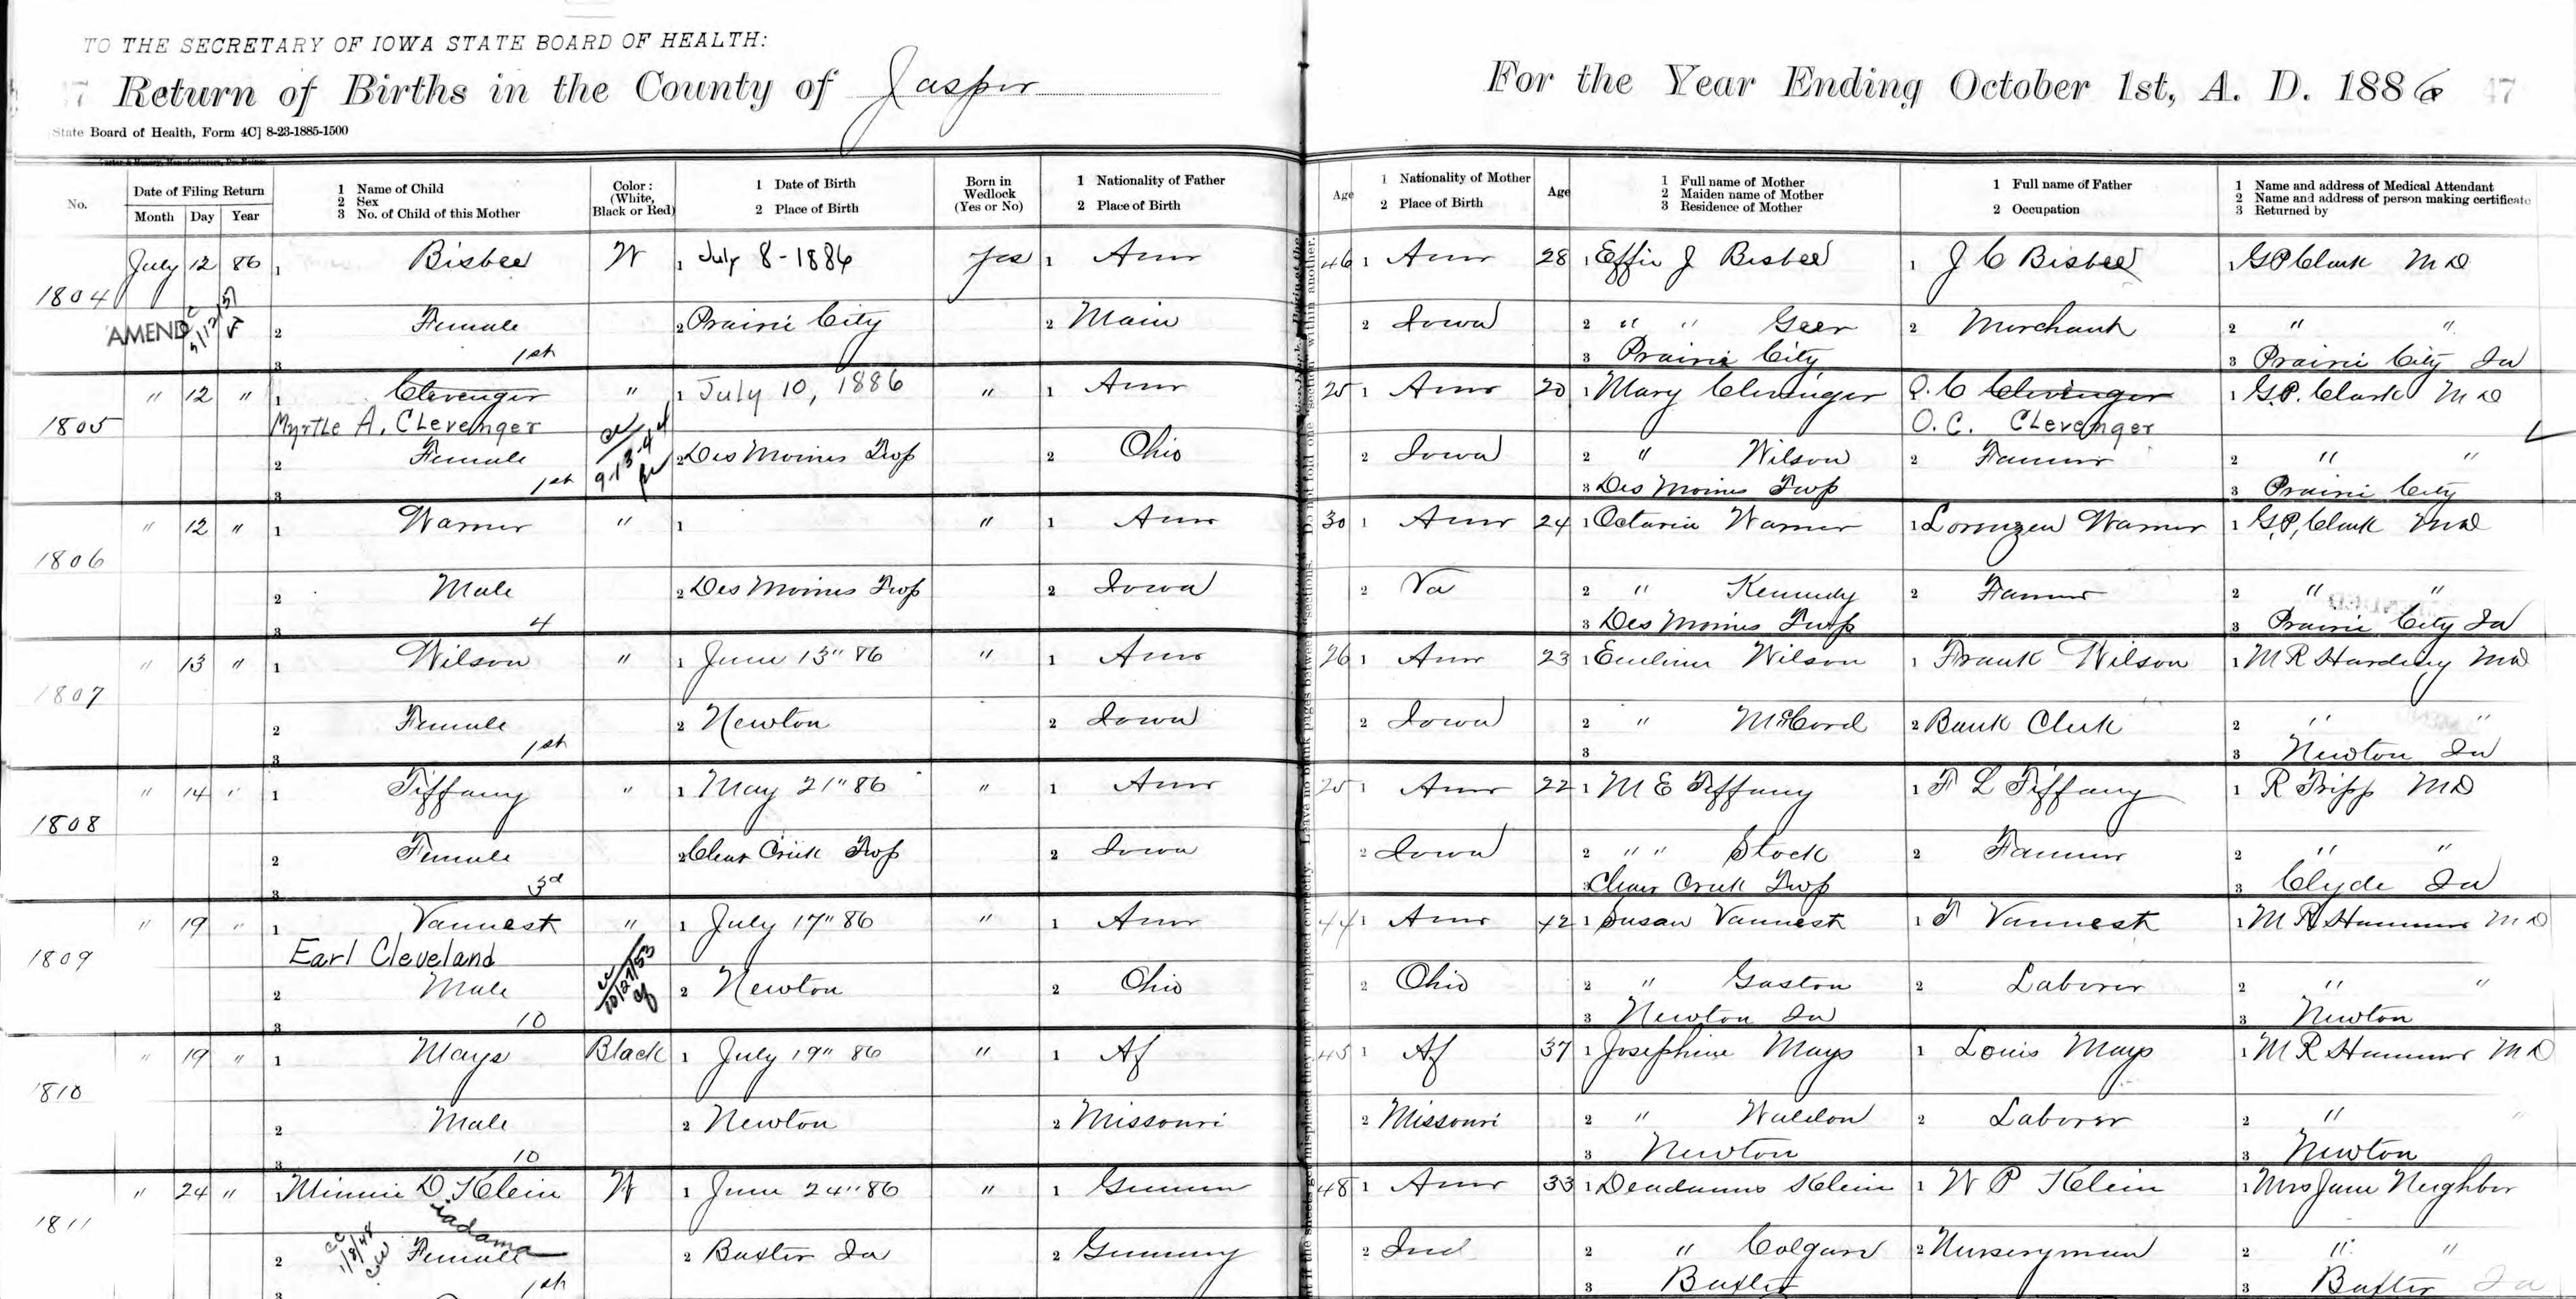 TO THE SECRETARY OF IOWA STATE BOARD OF HEALTH:
47 Return of Births in the County of Jasper For the Year Ending October 1st, A. D. 1886 47
State Board of Health, Form 4C] 8-23-1885-1500
No. Date of Filing Return Month Day Year 1 Name of Child 2 Sex 3 No. of Child of this Mother Color: (White, Black or Red) 1 Date of Birth 2 Place of Birth Born in Wedlock (Yes or No) 1 Nationality of Father 2 Place of Birth Age 1 Nationality of Mother 2 Place of Birth Age 1 Full name of Mother 2 Maiden name of Mother 3 Residence of Mother 1 Full name of Father 2 Occupation 1 Name and address of Medical Attendant 2 Name and address of person making certificate 3 Returned by
1804 July 12 86 1 Bisbee W 1 July 8-1886 yes 1 Amr 46 1 Amr 28 1 Effie J Bisbee 1 J C Bisbee 1 G P Clark M D
AMEND 2 Female 2 Prairie City 2 Main 2 Iowa 2 " " Geer 2 Merchant 2 " "
3 1st 3 Prairie City 3 Prairie City Ia
1805 " 12 " 1 Clevenger " 1 July 10, 1886 " 1 Amr 25 1 Amr 20 1 Mary Clevenger O. C Clevenger 1 G. P. Clark M D
Myrtle A. Clevenger O. C. Clevenger
2 Female 2 Des Moines Twp 2 Ohio 2 Iowa 2 " Wilson 2 Farmer 2 " "
3 1st 3 Des Moines Twp 3 Prairie City
1806 " 12 " 1 Warner " 1 " 1 Amr 30 1 Amr 24 1 Octavia Warner 1 Lorenzen Warner 1 G. P. Clark M D
2 Male 2 Des Moines Twp 2 Iowa 2 Va 2 " Kennedy 2 Farmer 2 " "
3 4 3 Des Moines Twp 3 Prairie City Ia
1807 " 13 " 1 Wilson " 1 June 13" 86 " 1 Amr 26 1 Amr 23 1 Emeline Wilson 1 Frank Wilson 1 M R Harding M D
2 Female 2 Newton 2 Iowa 2 Iowa 2 " McCord 2 Bank Clerk 2 " "
3 1st 3 3 Newton Ia
1808 " 14 " 1 Tiffany " 1 May 21" 86 " 1 Amr 25 1 Amr 22 1 M E Tiffany 1 F L Tiffany 1 R Tripp M D
2 Female 2 Clear Creek Twp 2 Iowa 2 Iowa 2 " " Stock 2 Farmer 2 " "
3 3d 3 Clear Creek Twp 3 Clyde Ia
1809 " 19 " 1 Vannest " 1 July 17" 86 " 1 Amr 44 1 Amr 42 1 Susan Vannest 1 F Vannest 1 M R Hammer M D
Earl Cleveland 10/27/53
2 Male 2 Newton 2 Ohio 2 Ohio 2 " Gaston 2 Laborer 2 " "
3 10 3 Newton Ia 3 Newton
1810 " 19 " 1 Mays Black 1 July 19" 86 " 1 Af 45 1 Af 37 1 Josephine Mays 1 Louis Mays 1 M R Hammer M D
2 Male 2 Newton 2 Missouri 2 Missouri 2 " Waldon 2 Laborer 2 " "
3 10 3 Newton 3 Newton
1811 " 24 " 1 Minnie D. Klein W 1 June 24" 86 " 1 German 48 1 Amr 33 1 Deadamus Klein 1 W P Klein 1 Mrs Jane Neighbor
eadama
2 Female 2 Baxter Ia 2 Germany 2 Ind 2 " Colgan 2 Nurseryman 2 " "
3 1st 3 Baxter 3 Baxter Ia